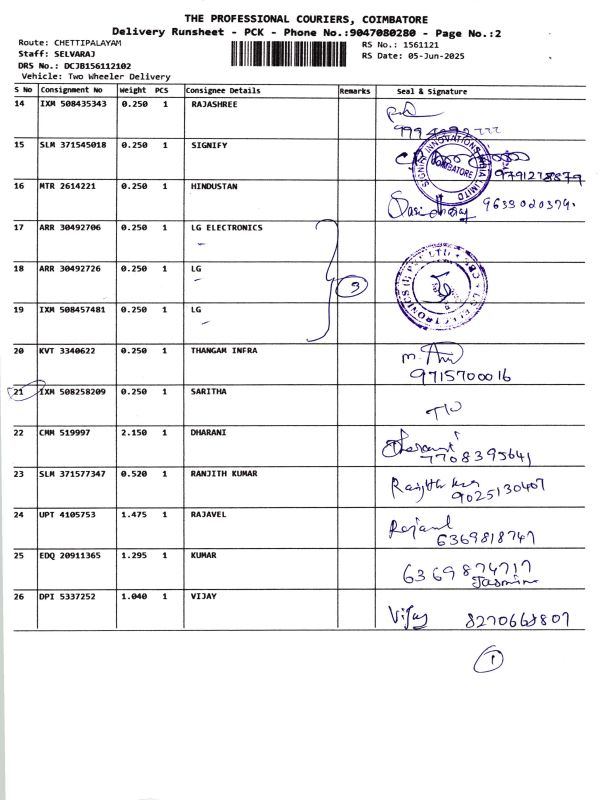 THE PROFESSIONAL COURIERS, COIMBATORE
Delivery Runsheet - PCK - Phone No.:9047080280 - Page No.:2
Route: CHETTIPALAYAM
RS No.: 1561121
Staff: SELVARAJ
RS Date: 05-Jun-2025
DRS No.: DCJB156112102
Vehicle: Two Wheeler Delivery
S No Consignment No Weight PCS Consignee Details Remarks Seal & Signature
14 IXM 508435343 0.250 1 RAJASHREE
15 SLM 371545018 0.250 1 SIGNIFY
9791278879
16 MTR 2614221 0.250 1 HINDUSTAN
17 ARR 30492706 0.250 1 LG ELECTRONICS
18 ARR 30492726 0.250 1 LG
3
19 IXM 508457481 0.250 1 LG
20 KVT 3340622 0.250 1 THANGAM INFRA
9715700016
21 IXM 508258209 0.250 1 SARITHA
22 CMM 519997 2.150 1 DHARANI
Dharani
7708395641
23 SLM 371577347 0.520 1 RANJITH KUMAR
9025130407
24 UPT 4105753 1.475 1 RAJAVEL
6369818747
25 EDQ 20911365 1.295 1 KUMAR
6369874717
Jasmine
26 DPI 5337252 1.040 1 VIJAY
Vijay 8270668807
1